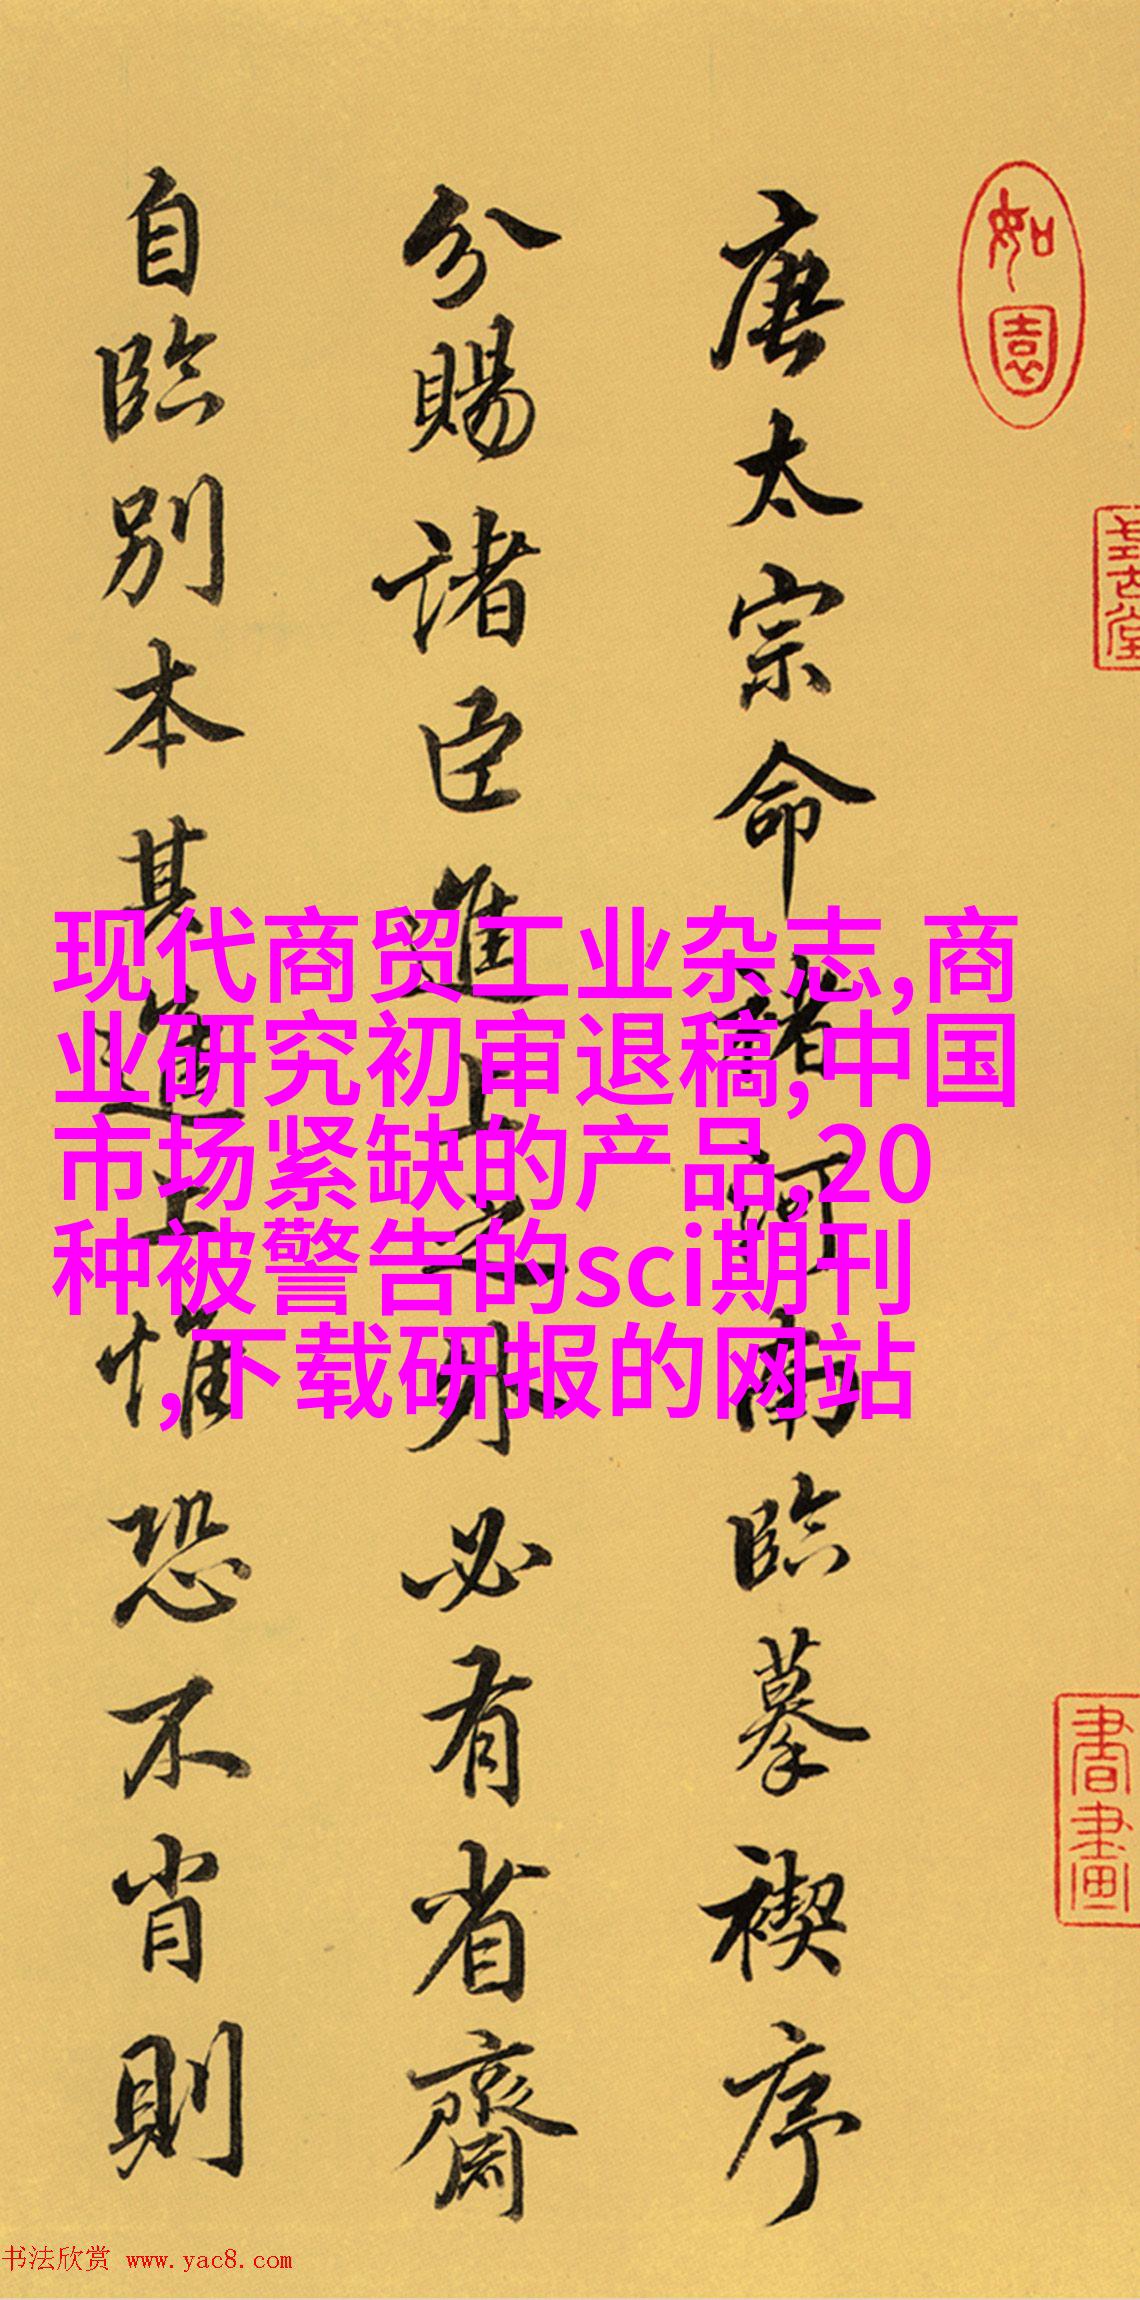 如園
唐太宗命褚河南臨摹禊序
分賜諸臣進上之外必有省齋
自臨別本其進上惟恐不肖則
現代商贸工业杂志,商
业研究初审退稿,中国
市场紧缺的产品,20
种被警告的sci期刊
,下载研报的网站
書畫
书法欣赏 www.yac8.com